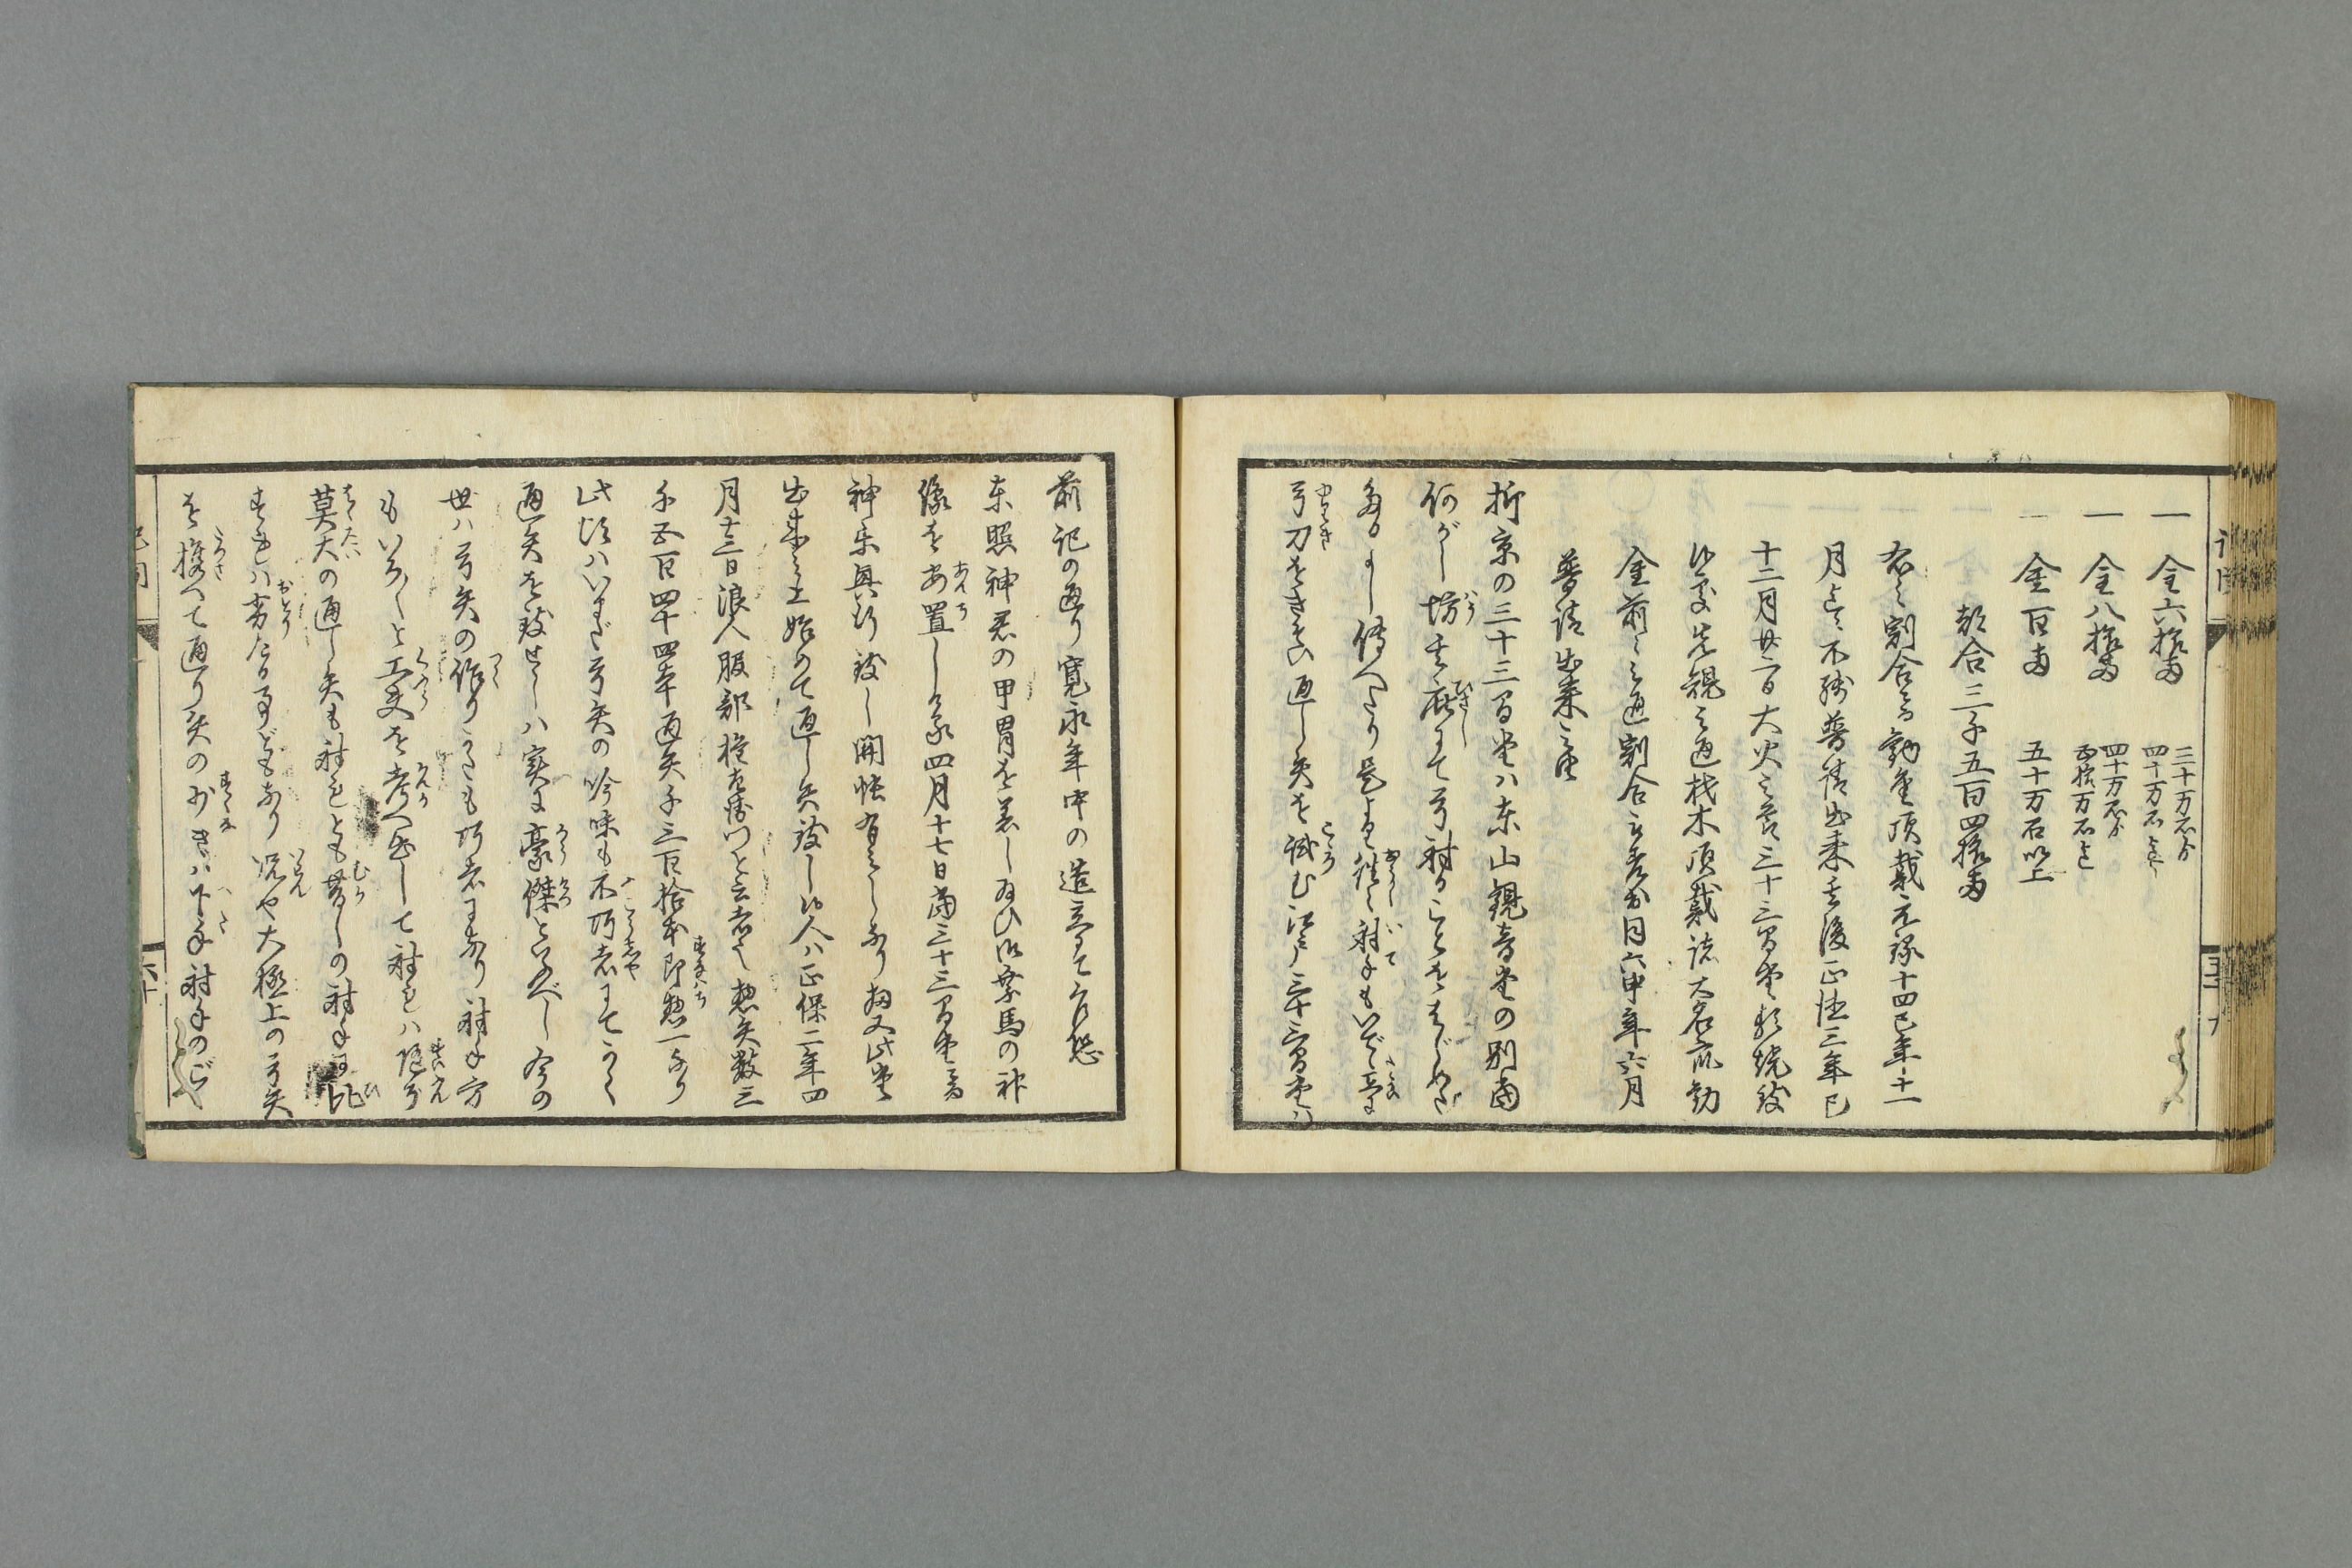 一 金六拾両 三十万石ゟ
四十万石迄
一 金八拾両 四十万石ゟ
五拾万石迄
一 金百両 五十万石以上
都合三千五百四拾両
右之割合之通勧金頂戴元禄十四巳年十一
月迄ニ不残普請出来其後正徳三年巳
十二月廿二日大火之節三十三間堂類焼致
候処先規之通材木頂戴諸大名衆勧
金前々之通割合を以同六申年六月
普請出来之由
抑京の三十三間堂ハ東山観音堂の別当
何がし坊其庇にて弓射ることをはじめた
るよし伝へたり是より後々射手もいで
弓刀をきそひ通し矢を試む江戸三十三間堂ハ
前記の通り寛永年中の造立にて
東照神君の甲冑を着し給ひ御乗馬の神
像を安置し奉る四月十七日当三十三間堂
神楽興行致し開帳有之しなり扨又此堂
出来之上始めて通し矢致し候人ハ正保二年四
月十三日浪人服部権左衛門と云者也惣矢数三
千五百四十四本通矢千三百拾本即惣一なり
此頃ハいまだ弓矢の吟味も不功者にてかく
通矢を致せしハ実に豪傑といふべし今の
世ハ弓矢の作りかたも功者になり射手方
もいろ〱と工夫を考へ出して射れハ随分
莫大の通し矢も射れとも昔しの射手に比
すれハ劣たる事どもあり況や大極上の弓矢
を携へて通り矢の少きハ下手射手の